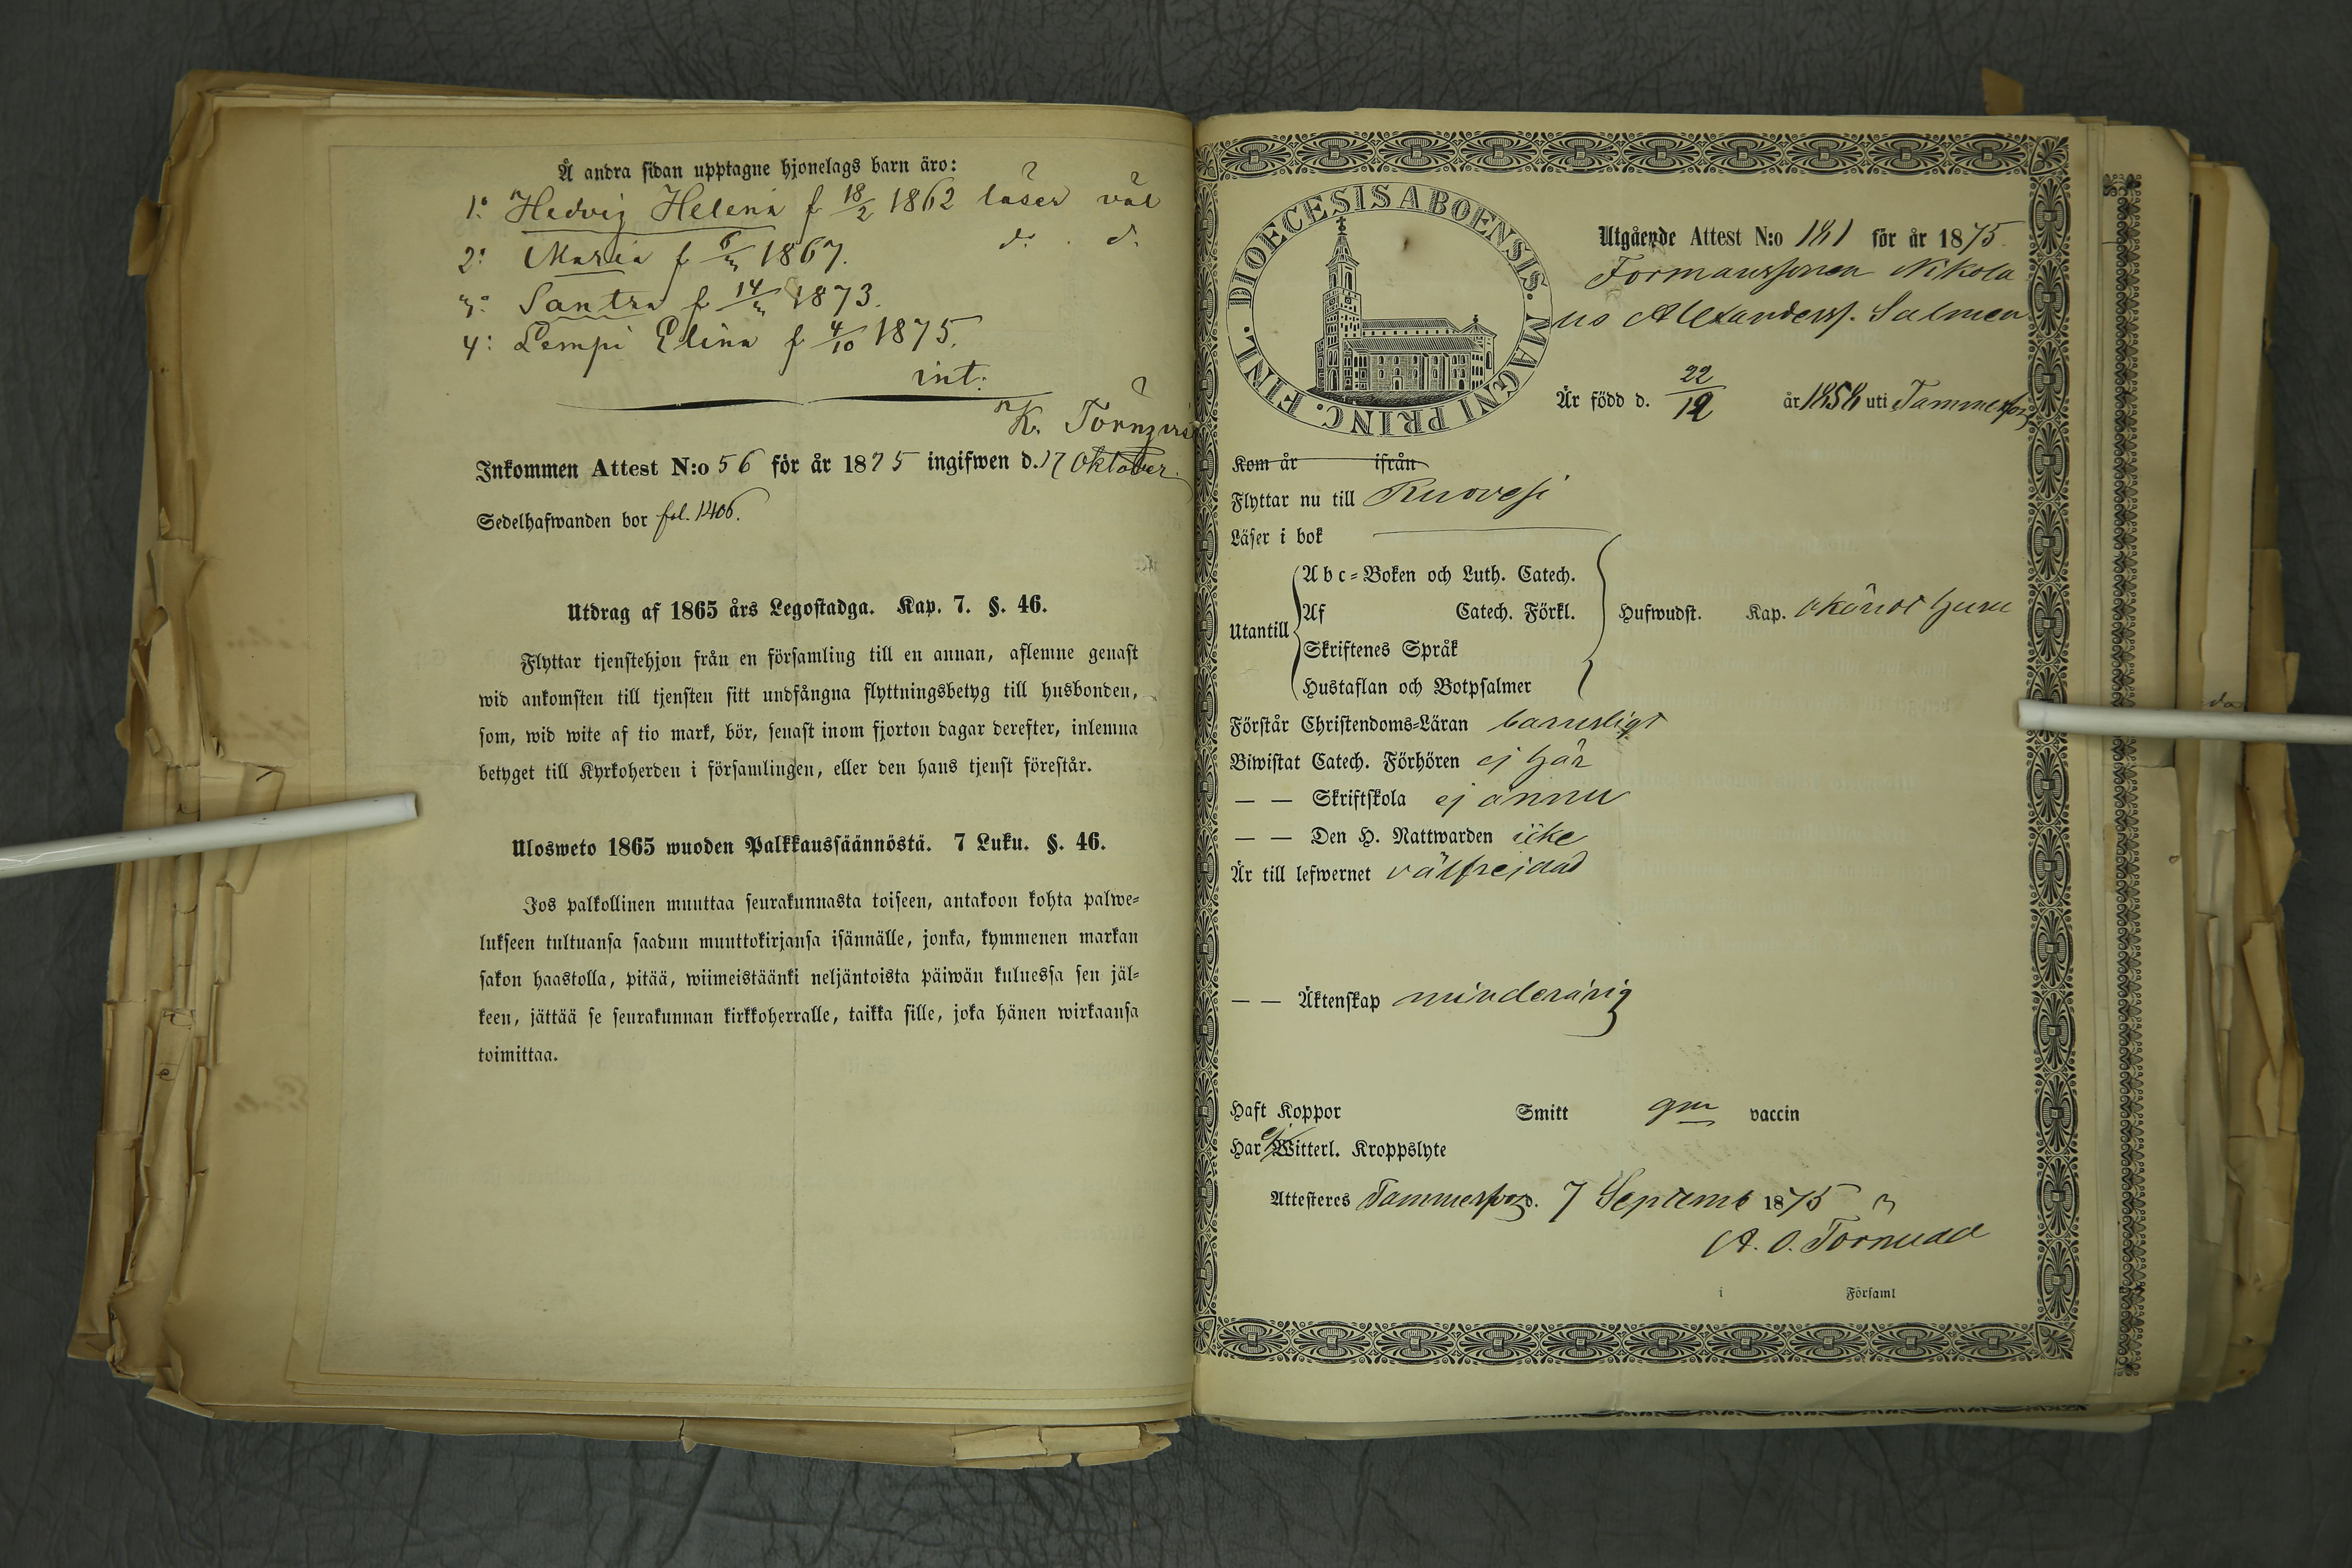 Å andra sidan upptagne hjonelags barn äro:
1º Hedvig Helena f 18/2 1862 läser väl
2º Maria f 6/ 1867. d:o d:o
3º Santra f 14/ 1873.
4: Lempi Elina f 4/10 1875.
int:
K.
Inkommen Attest N:o 56 för år 1875 ingifwen d. 17 Oktober
Sedelhafwanden bor fol. 1406.
Utdrag af 1865 års Legostadga. Kap. 7. §. 46.
Flyttar tjenstehjon från en församling till en annan, aflemne genast
wid ankomsten till tjensten sitt undfångna flyttningsbetyg till husbonden,
som, wid wite af tio mark, bör, senast inom fjorton dagar derefter, inlemna
betyget till Kyrkoherden i församlingen, eller den hans tjenst förestår.
Ulosweto 1865 wuoden Palkkaussäännöstä. 7 Luku. §. 46.
Jos palkollinen muuttaa seurakunnasta toiseen, antakoon kohta palwe-
lukseen tultuansa saadun muuttokirjansa isännälle, jonka, kymmenen markan
sakon haastolla, pitää, wiimeistäänki neljäntoista päiwän kuluessa sen jäl-
keen, jättää se seurakunnan kirkkoherralle, taikka sille, joka hänen wirkaansa
toimittaa.
DIOECESIS ABOENSIS. MAGNI PRINC. FINL.
Utgående Attest N:o 181 för år 1875.
Formanssonen Nikola
us Alexanderss. Salmen
Är född d. 22/12 år 1858 uti Tammerfors
Kom år ifrån
Flyttar nu till Ruovesi
Läser i bok
Utantill
Abc-Boken och Luth. Catech.
Af Catech. Förkl.
Skriftenes Språk
Hustaflan och Botpsalmer
Hufwudst. Kap. okändt huru
Förstår Christendoms-Läran barnsligt
Biwistat Catech. Förhören ej här
— — Skriftskola ej ännu
— — Den H. Nattwarden icke
Är till lefwernet välfrejdad
— — Äktenskap minderårig
Haft Koppor Smitt gm vaccin
Har ej Witterl. Kroppslyte
Attesteres Tammerfors d. 7 Septemb 1875
A. O. Törnudd
i Församl